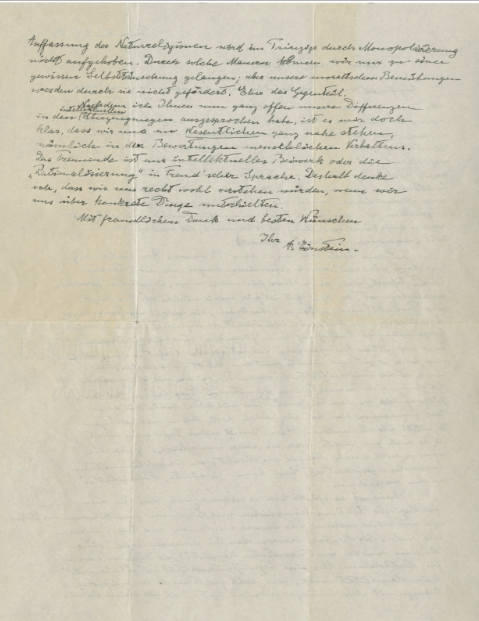 Auffassung der Naturreligionen wird im Prinzip durch Monopolisierung
nicht aufgehoben. Durch solche Mauern können wir nur zu einer
gewissen Selbsttäuschung gelangen, aber unsere moralischen Bemühungen
werden durch sie nicht gefördert. Eher das Gegenteil.
Nachdem ich Ihnen nun ganz offen unsere Differenzen
intellektuellen
in den Überzeugungen ausgesprochen habe, ist es mir doch
klar, dass wir uns im Wesentlichen ganz nahe stehen,
nämlich in den Bewertungen menschlichen Verhaltens.
Das Trennende ist nur intellektuelles Beiwerk oder die
„Rationalisierung" in Freud'scher Sprache. Deshalb denke
ich, dass wir uns recht wohl verstehen würden, wenn wir
uns über konkrete Dinge unterhielten.
Mit freundlichem Dank und besten Wünschen
Ihr
A. Einstein.